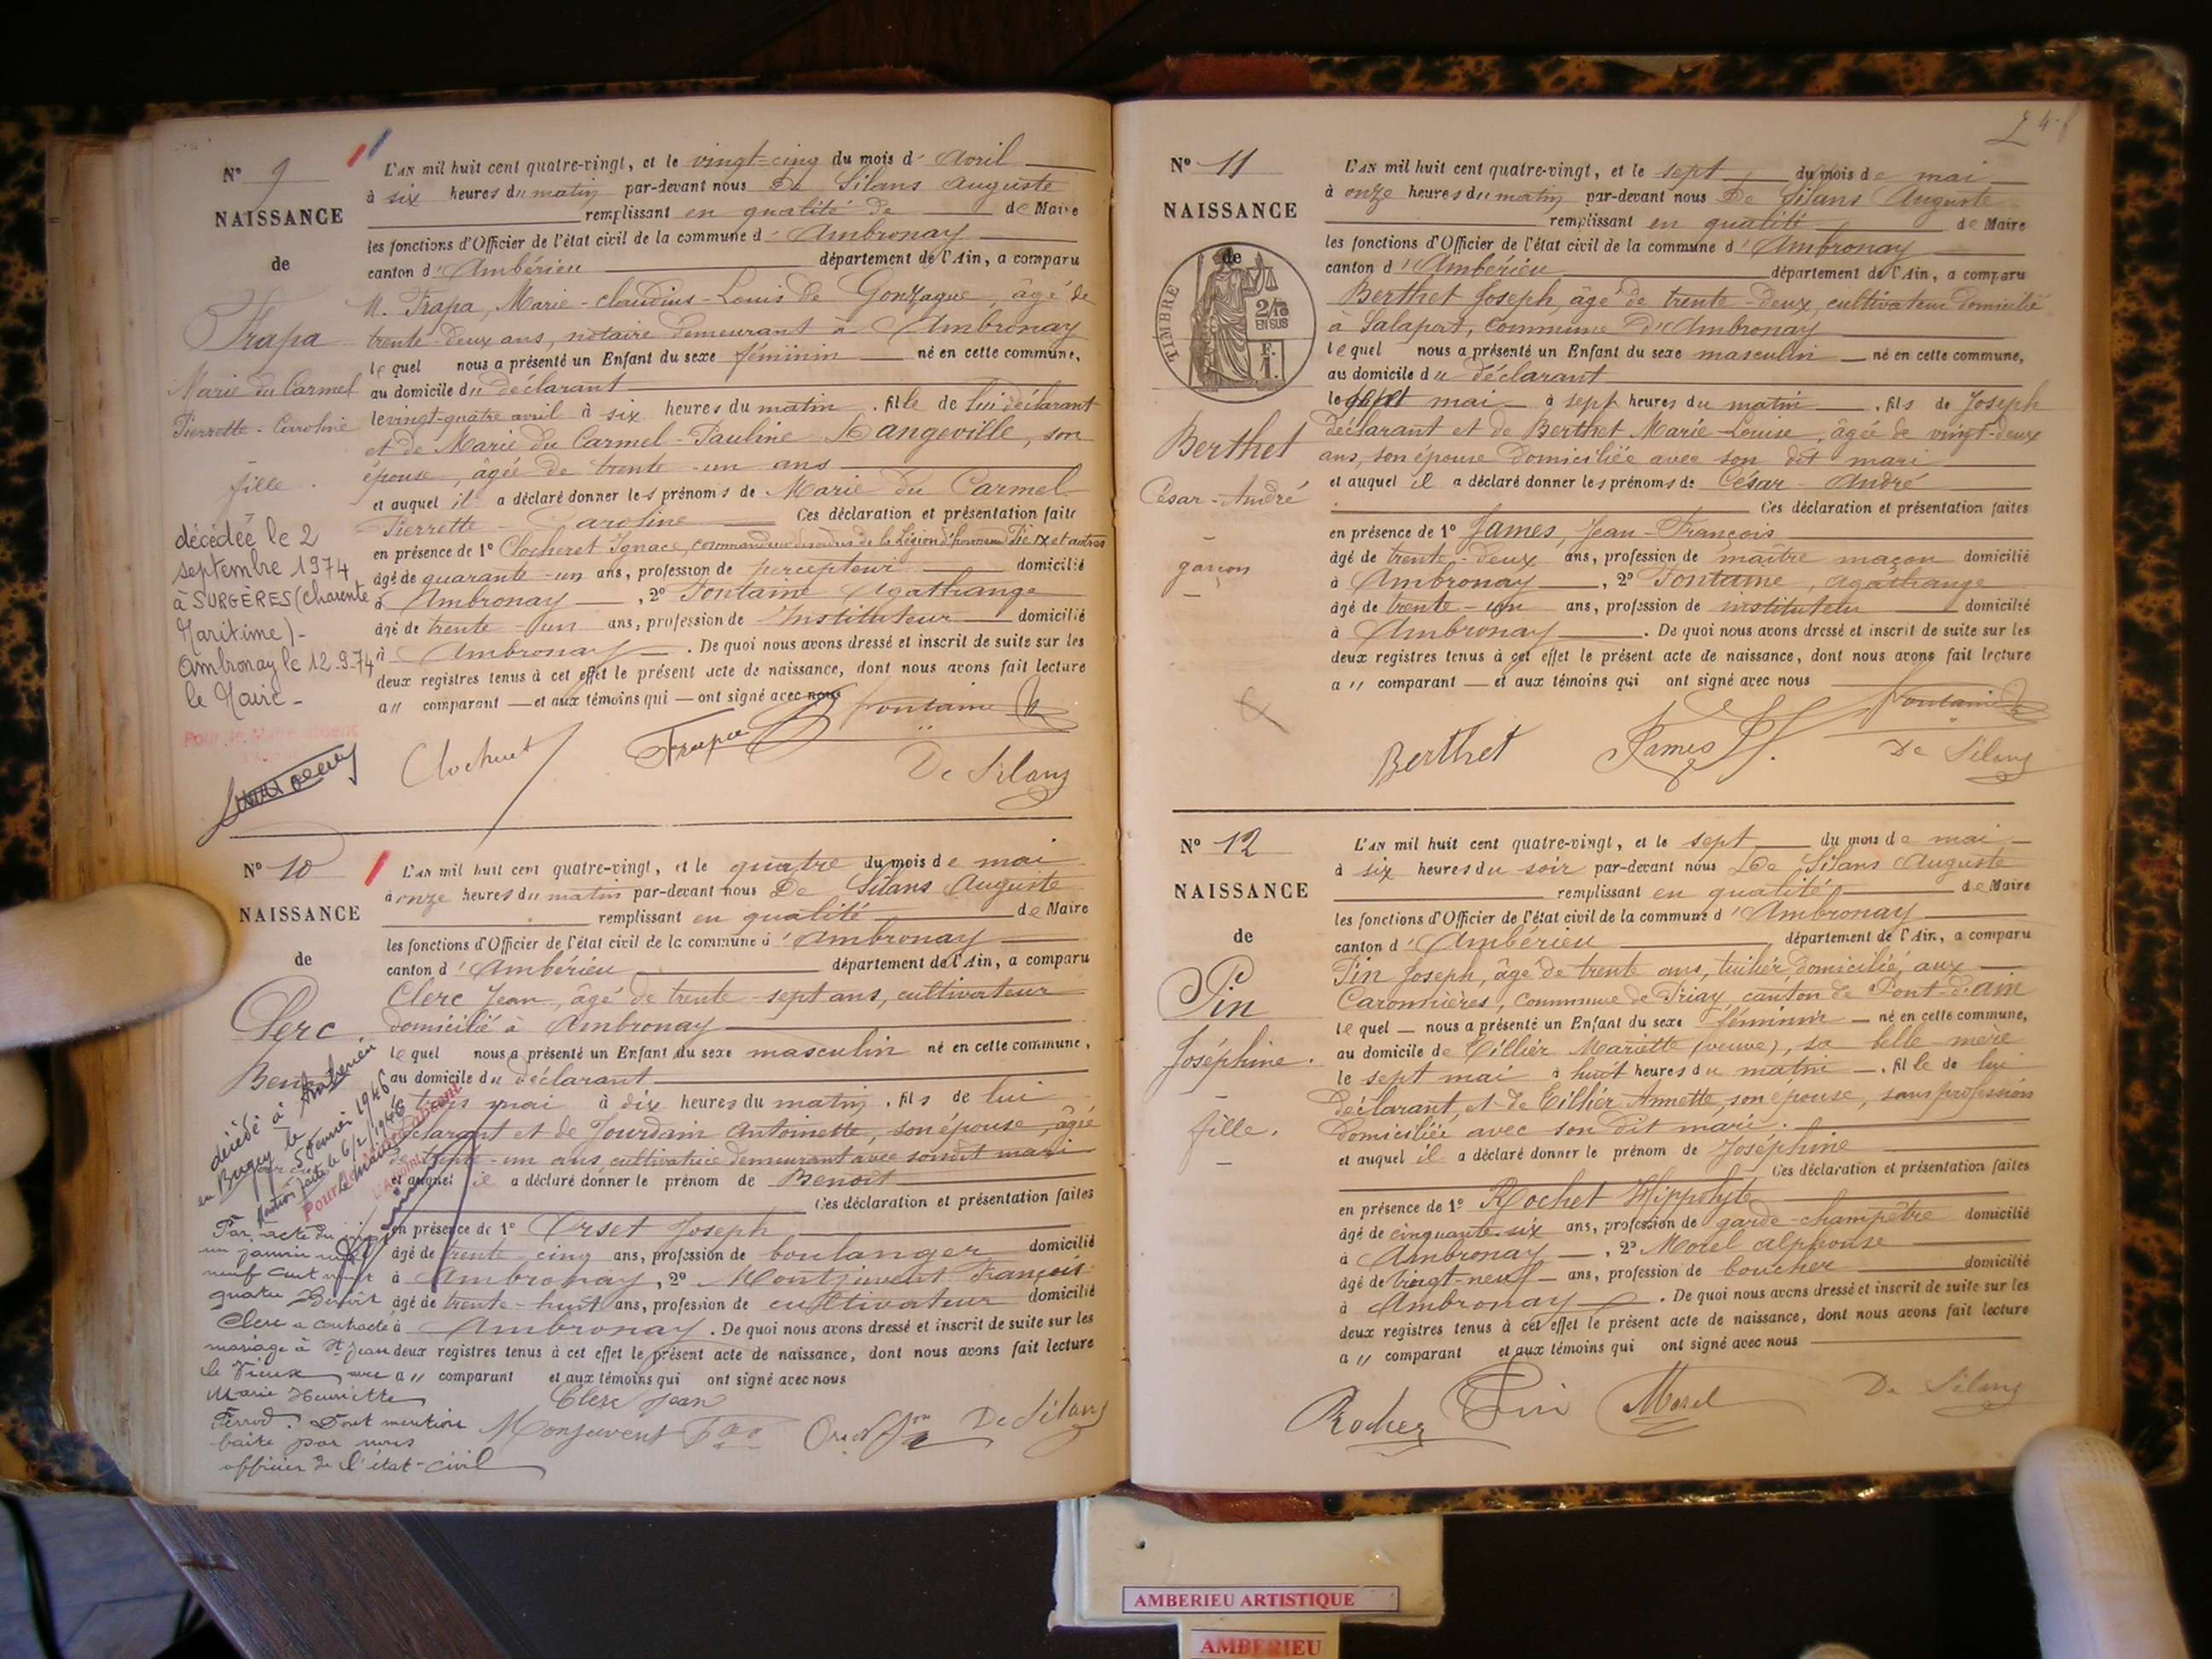 Nº 9
NAISSANCE
de
Trapa
Marie du Carmel
Pierrette-Caroline
fille.
décédée le 2
septembre 1974
à SURGÈRES (Charente
Maritime)-
Ambronay le 12.9.74
le Maire-
Pour le Maire absent
L'AN mil huit cent quatre-vingt, et le vingt-cinq du mois d'Avril
à six heures du matin par-devant nous De Silans Auguste
remplissant en qualité de de Maire
les fonctions d'Officier de l'état civil de la commune d'Ambronay
canton d'Ambérieu département de l'Ain, a comparu
M. Trapa, Marie-claudius-Louis de Gonzague, âgé de
trente-deux ans, notaire demeurant à Ambronay
lequel nous a présenté un Enfant du sexe féminin né en cette commune,
au domicile du déclarant
le vingt-quatre avril à six heures du matin, fille de lui déclarant
et de Marie du Carmel-Pauline Rangeville, son
épouse, âgée de trente-un ans
et auquel il a déclaré donner les prénoms de Marie du Carmel
Pierrette-Caroline Ces déclaration et présentation faite
en présence de 1º Clocheret Ignace, commandeur des ordres de la Légion d'honneur Pie IX et autres
âgé de quarante-un ans, profession de percepteur domicilié
à Ambronay, 2º Fontaine Agathange
âgé de trente-un ans, profession de Instituteur domicilié
à Ambronay. De quoi nous avons dressé et inscrit de suite sur les
deux registres tenus à cet effet le présent acte de naissance, dont nous avons fait lecture
au comparant et aux témoins qui ont signé avec nous
Fontaine
Clocheret Trapa
De Silans
Nº 10
NAISSANCE
de
Clerc
Benoit
décédé à Ambérieu
en Bugey le
5 février 1946
Mention faite le 6/2/1946
Le Maire
Pour le Maire absent
L'Adjoint
Par acte du vingt
un janvier mil
neuf cent vingt
quatre Benoit
Clerc a contracté
mariage à St Jean
le Vieux avec
Marie Henriette
Ferrod. Dont mention
faite par nous
officier de l'état-civil
L'AN mil huit cent quatre-vingt, et le quatre du mois de mai
à onze heures du matin par-devant nous De Silans Auguste
remplissant en qualité de Maire
les fonctions d'Officier de l'état civil de la commune d'Ambronay
canton d'Ambérieu département de l'Ain, a comparu
Clerc Jean, âgé de trente-sept ans, cultivateur
domicilié à Ambronay
lequel nous a présenté un Enfant du sexe masculin né en cette commune,
au domicile du déclarant
trois mai à dix heures du matin, fils de lui
déclarant et de Jourdain Antoinette, son épouse, âgée
de trente-un ans, cultivatrice demeurant avec son dit mari
et auquel il a déclaré donner le prénom de Benoit
Ces déclaration et présentation faites
en présence de 1º Orset Joseph
âgé de trente cinq ans, profession de boulanger domicilié
à Ambronay, 2º Montjuvent François
âgé de trente-huit ans, profession de cultivateur domicilié
à Ambronay. De quoi nous avons dressé et inscrit de suite sur les
deux registres tenus à cet effet le présent acte de naissance, dont nous avons fait lecture
au comparant et aux témoins qui ont signé avec nous
Clerc Jean
Monjuvent De Silans
Nº 11
NAISSANCE
de
TIMBRE
2/10
EN SUS
F.
1.
Berthet
César-André
garçon
L'AN mil huit cent quatre-vingt, et le sept du mois de mai
à onze heures du matin par-devant nous De Silans Auguste
remplissant en qualité de Maire
les fonctions d'Officier de l'état civil de la commune d'Ambronay
canton d'Ambérieu département de l'Ain, a comparu
Berthet Joseph, âgé de trente-deux, cultivateur domicilié
à Salaport, commune d'Ambronay
lequel nous a présenté un Enfant du sexe masculin né en cette commune,
au domicile du déclarant
le sept mai à sept heures du matin, fils de Joseph
déclarant et de Berthet Marie-Louise, âgée de vingt-deux
ans, son épouse domiciliée avec son dit mari
et auquel il a déclaré donner les prénoms de César-André
Ces déclaration et présentation faites
en présence de 1º James, Jean-François
âgé de trente-deux ans, profession de maître maçon domicilié
à Ambronay, 2º Fontaine, Agathange
âgé de trente-un ans, profession de instituteur domicilié
à Ambronay. De quoi nous avons dressé et inscrit de suite sur les
deux registres tenus à cet effet le présent acte de naissance, dont nous avons fait lecture
au comparant et aux témoins qui ont signé avec nous
Fontaine
Berthet James De Silans
Nº 12
NAISSANCE
de
Pin
Joséphine.
fille.
L'AN mil huit cent quatre-vingt, et le sept du mois de mai
à six heures du soir par-devant nous De Silans Auguste
remplissant en qualité de Maire
les fonctions d'Officier de l'état civil de la commune d'Ambronay
canton d'Ambérieu département de l'Ain, a comparu
Pin Joseph, âgé de trente ans, tuilier, domicilié aux
Caronnières, commune de Priay, canton de Pont-d'ain
lequel nous a présenté un Enfant du sexe féminin né en cette commune,
au domicile de Tillier Mariette (veuve), sa belle-mère
le sept mai à huit heures du matin, fille de lui
déclarant, et de Tillier Annette, son épouse, sans profession
domiciliée avec son dit mari.
et auquel il a déclaré donner le prénom de Joséphine
Ces déclaration et présentation faites
en présence de 1º Rochet Hippolyte
âgé de cinquante-six ans, profession de garde-champêtre domicilié
à Ambronay, 2º Morel alphonse
âgé de vingt-neuf ans, profession de boucher domicilié
à Ambronay. De quoi nous avons dressé et inscrit de suite sur les
deux registres tenus à cet effet le présent acte de naissance, dont nous avons fait lecture
au comparant et aux témoins qui ont signé avec nous
Rochet Pin Morel De Silans
AMBERIEU ARTISTIQUE
AMBERIEU